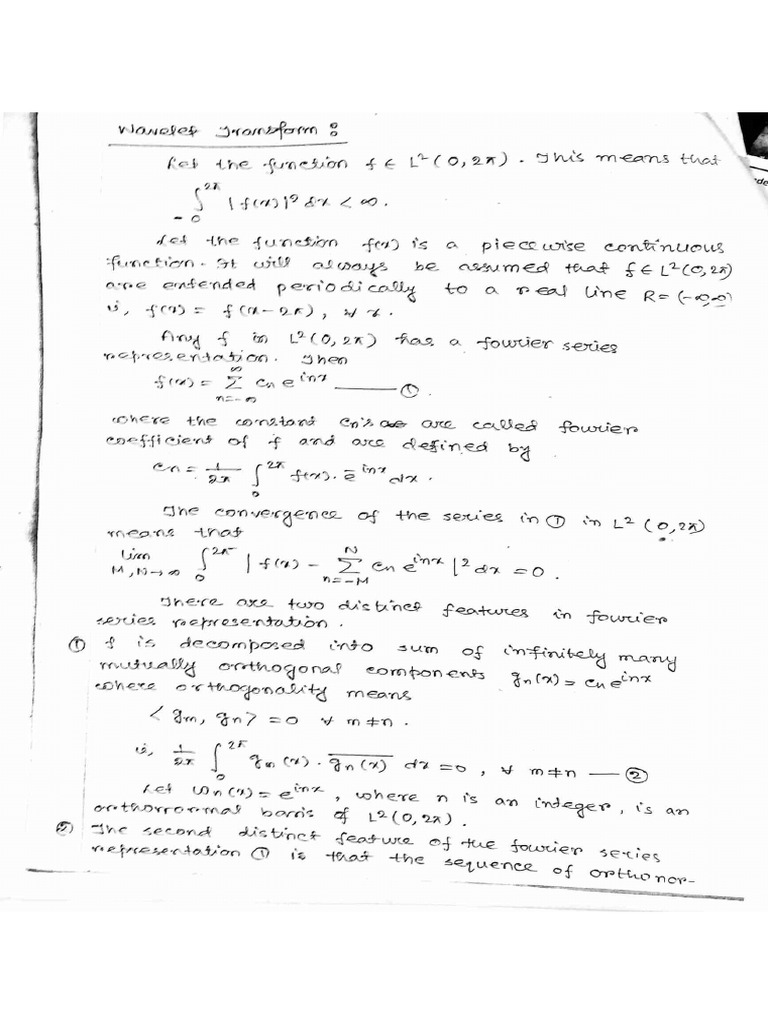 Wavelet Transform :
Let the function f ∈ L²(0, 2π). This means that
∫₀^{2π} |f(x)|² dx < ∞.
Let the function f(x) is a piecewise continuous
function. It will always be assumed that f ∈ L²(0, 2π)
are extended periodically to a real line R = (-∞, ∞)
i.e., f(x) = f(x - 2π), ∀ x.
Any f in L²(0, 2π) has a fourier series
representation. Then
f(x) = Σ_{n=-∞}^{∞} cn e^{inx} —— ①
where the constant cn's are called fourier
coefficient of f and are defined by
cn = 1/2π ∫₀^{2π} f(x). e^{-inx} dx.
The convergence of the series in ① in L²(0, 2π)
means that
lim_{M,N→∞} ∫₀^{2π} |f(x) - Σ_{n=-M}^{N} cn e^{inx}|² dx = 0.
There are two distinct features in fourier
series representation.
① f is decomposed into sum of infinitely many
mutually orthogonal components gn(x) = cn e^{inx}
where orthogonality means
<gm, gn> = 0 ∀ m ≠ n.
i.e., 1/2π ∫₀^{2π} gm(x). \overline{gn(x)} dx = 0, ∀ m ≠ n —— ②
Let ωn(x) = e^{inx}, where n is an integer, is an
orthorrormal barris of L²(0, 2π).
② The second distinct feature of the fourier series
representation ① is that the sequence of orthonor-